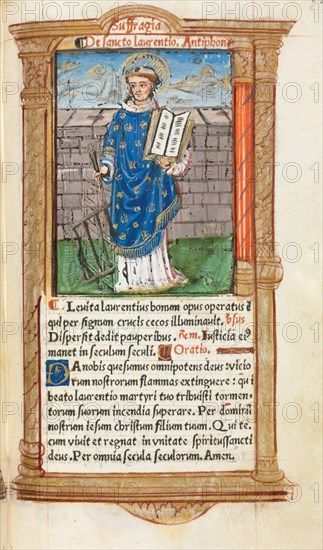 Suffragia
De sancto laurentio. Antiphona
C. Leuita laurentius bonum opus operatus ē
qui per signum crucis cecos illuminauit. v̄sus
Dispersit dedit pauperibus. R̄em. Iusticia ei
manet in seculum seculi. Oratio.
DA nobis quesumus omnipotens deus: vicio
rum nostrorum flammas extinguere: qui
beato laurentio martyri tuo tribuisti tormen-
torum suorum incendia superare. Per dominū
nostrum iesum christum filium tuum. Qui te-
cum viuit et regnat in vnitate spiritussancti
deus. Per omnia secula seculorum. Amen.